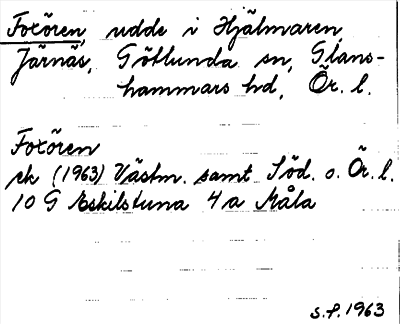 Foxören, udde i Hjälmaren,
Järnäs, Götlunda sn, Glans-
hammars hd, Ör. l.
Foxören
ek (1963) Västm. samt Söd. o. Ör. l.
10 G Eskilstuna 4 a Måla
S.P. 1963